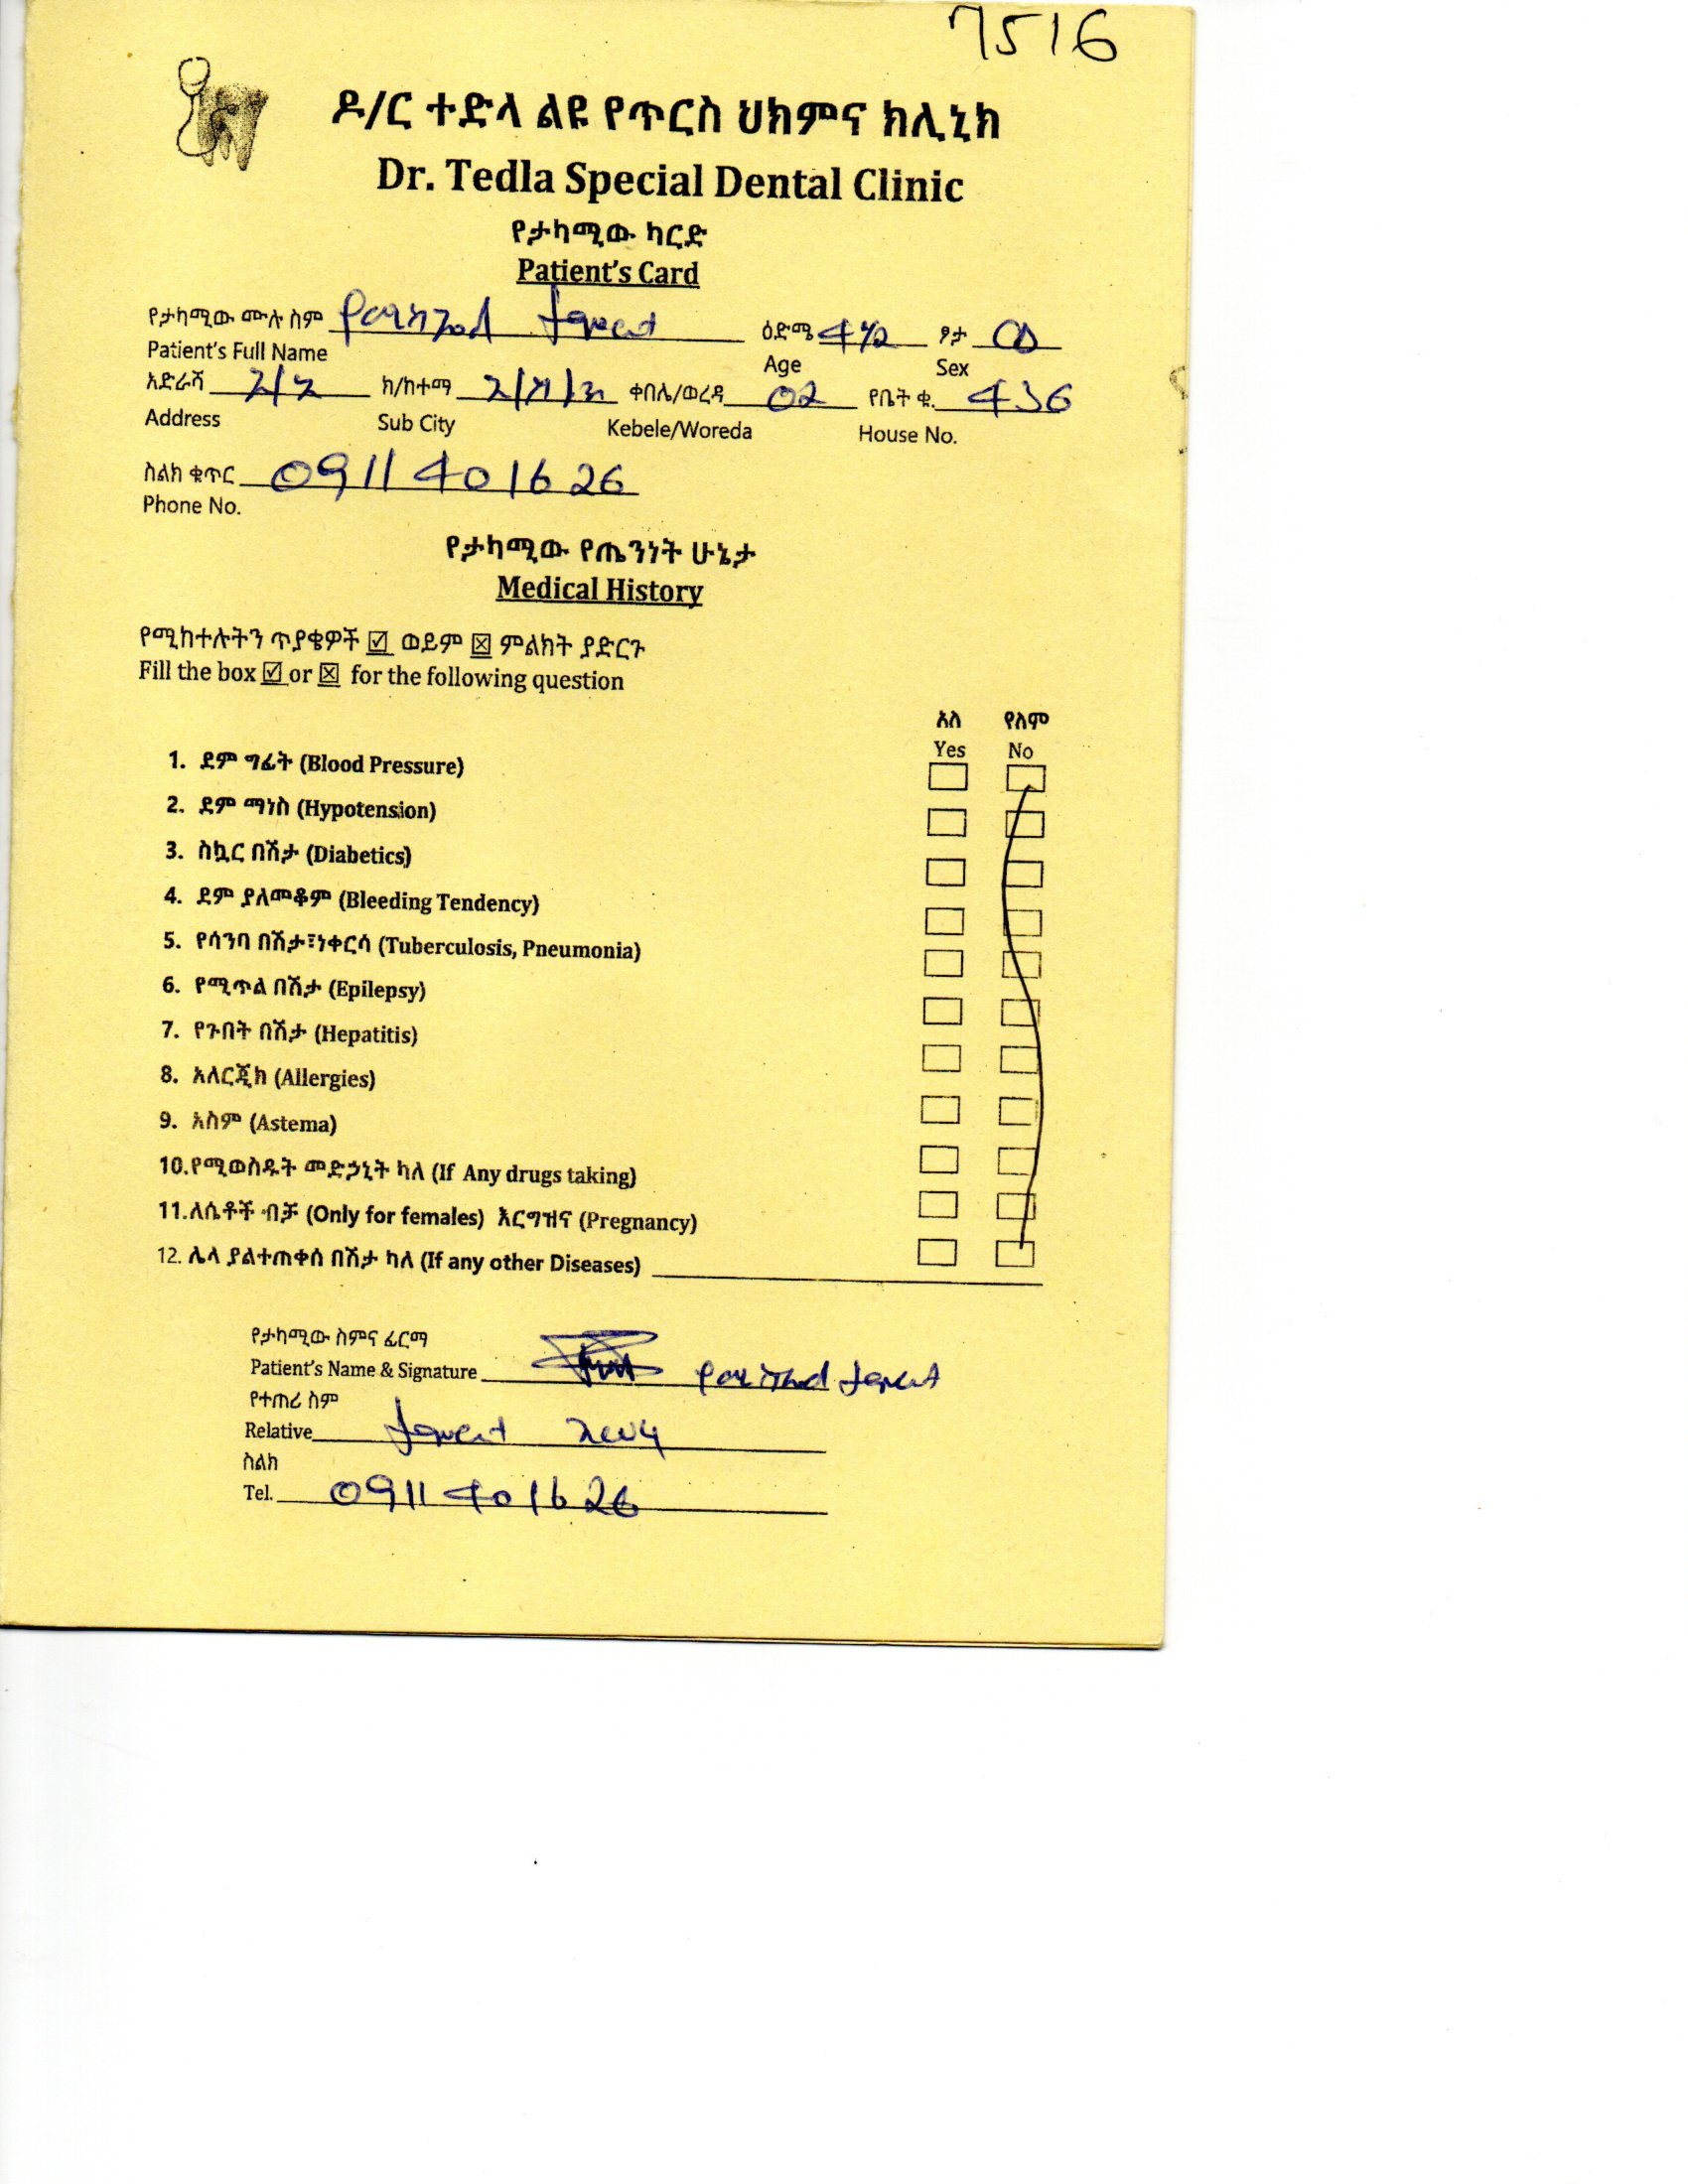 7516
ዶ/ር ተድላ ልዩ የጥርስ ህክምና ክሊኒክ
Dr. Tedla Special Dental Clinic
የታካሚው ካርድ
Patient's Card
የታካሚው ሙሉ ስም ዕድሜ 4½ ፆታ ወ
Patient's Full Name Age Sex
አድራሻ አ/አ ክ/ከተማ ቀበሌ/ወረዳ 02 የቤት ቁ. 436
Address Sub City Kebele/Woreda House No.
ስልክ ቁጥር 0911 401626
Phone No.
የታካሚው የጤንነት ሁኔታ
Medical History
የሚከተሉትን ጥያቄዎች ☑ ወይም ☒ ምልክት ያድርጉ
Fill the box ☑ or ☒ for the following question
አለ የለም
Yes No
1. ደም ግፊት (Blood Pressure)
2. ደም ማነስ (Hypotension)
3. ስኳር በሽታ (Diabetics)
4. ደም ያለመቆም (Bleeding Tendency)
5. የሳንባ በሽታ፣ነቀርሳ (Tuberculosis, Pneumonia)
6. የሚጥል በሽታ (Epilepsy)
7. የጉበት በሽታ (Hepatitis)
8. አለርጂክ (Allergies)
9. አስም (Astema)
10.የሚወስዱት መድኃኒት ካለ (If Any drugs taking)
11.ለሴቶች ብቻ (Only for females) እርግዝና (Pregnancy)
12. ሌላ ያልተጠቀሰ በሽታ ካለ (If any other Diseases)
የታካሚው ስምና ፊርማ
Patient's Name & Signature
የተጠሪ ስም
Relative
ስልክ
Tel. 0911 401626